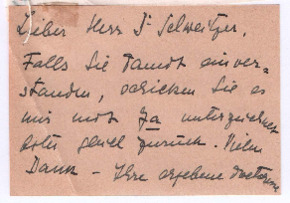 Lieber Herr Dr Schweitzer,
Falls Sie damit einver-
standen, schicken Sie es
mir mit Ja unterzeichnet
bitte zurück. Vielen
Dank - Ihre ergebene